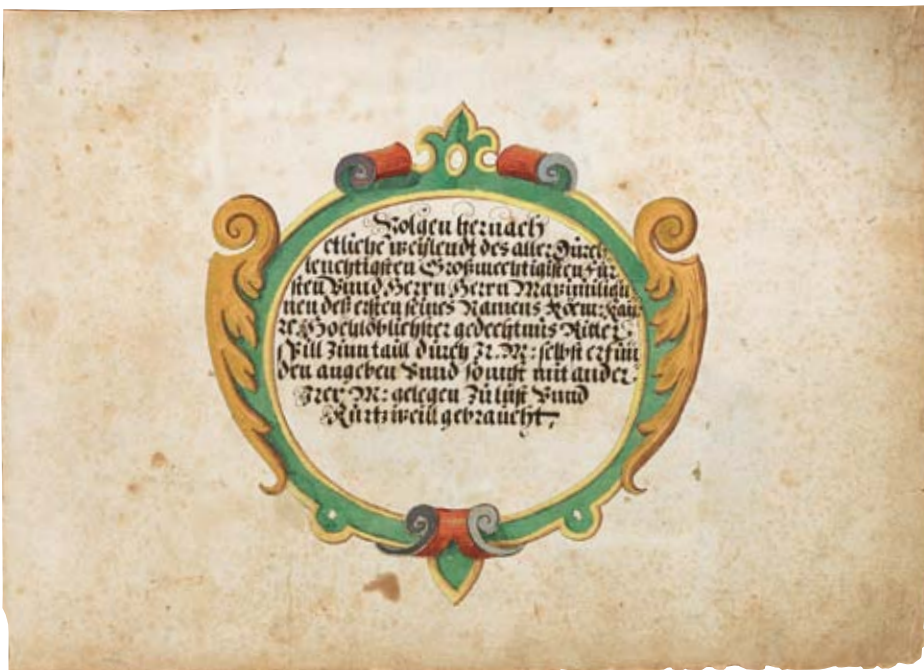 Volgen hernach
etliche weÿlendt des aller Dürch
leuchtigsten Großmechtigisten Für
sten Vnnd Herrn Herrn Maximilia
nen deß ersten seines Namens Röem: Kaÿ
rc Hochlöblichster gedechtnüs Ritter
Spill Zünn taill dürch Jr. M: selbst erfün
den angeben Vnnd sonnst mit ander
Jrer M: gelegen Zü lüst Vnnd
Kürtzweill gebraucht,